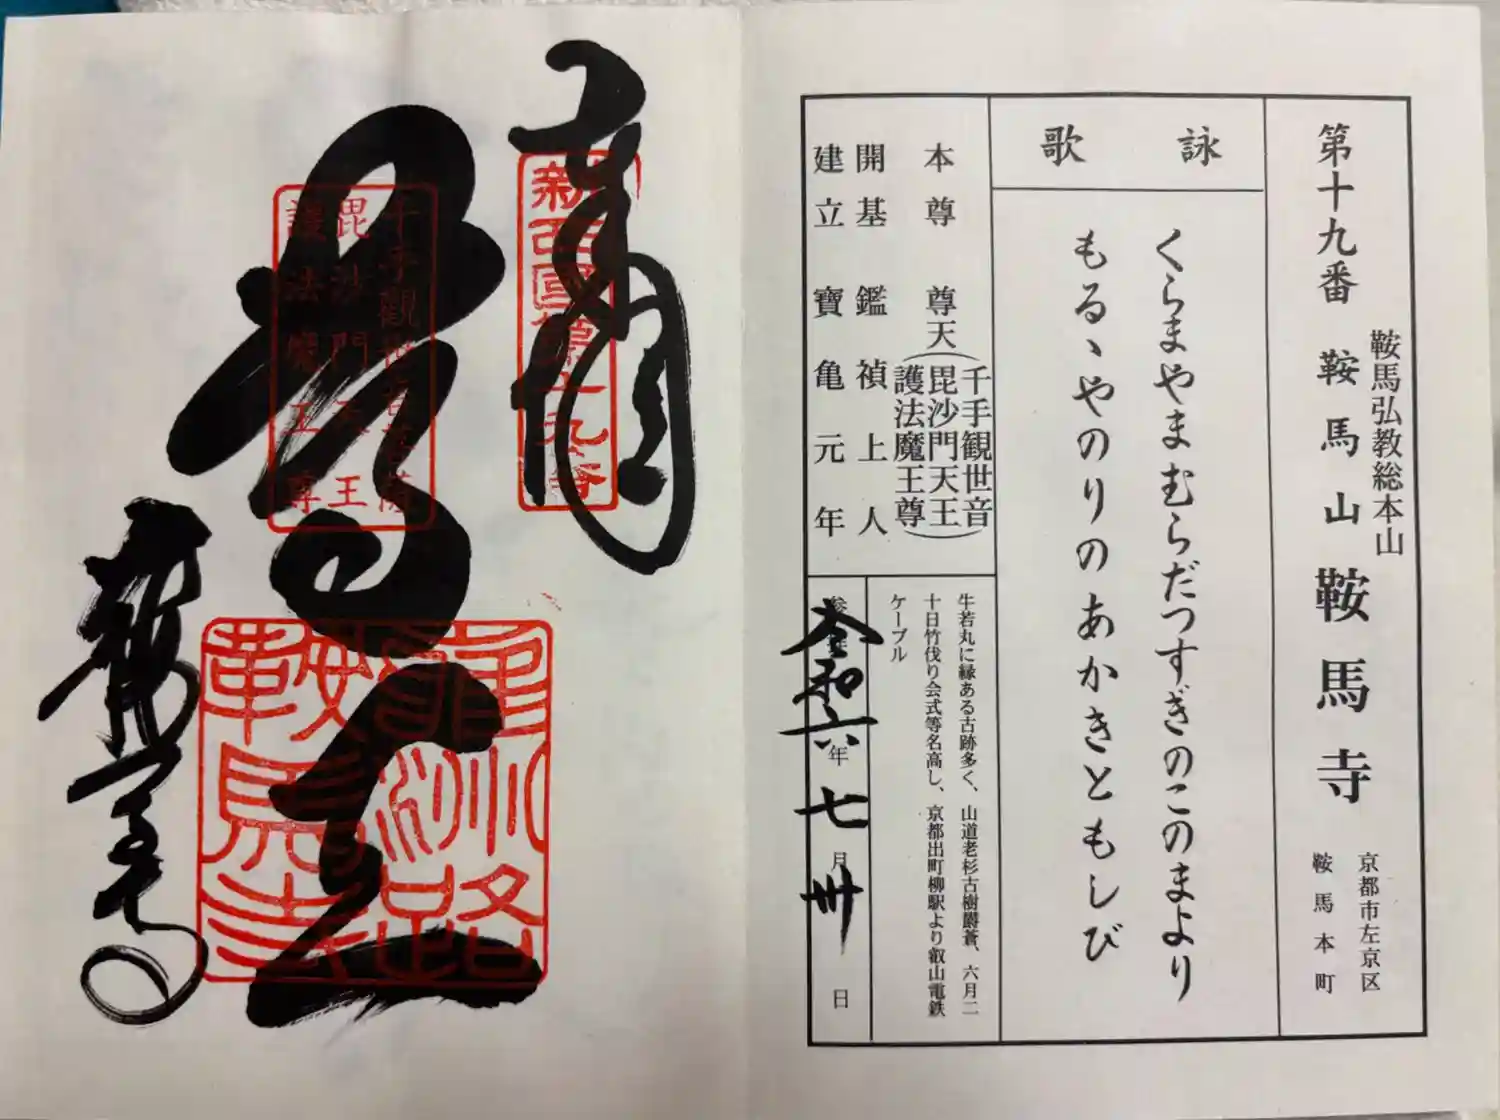 第十九番 鞍馬山 鞍馬寺
鞍馬弘教総本山
京都市左京区
鞍馬本町
詠歌
くらまやまむらだつすぎのこのまより
もるゝやのりのあかきともしび
本尊 尊天(千手観世音
毘沙門天王
護法魔王尊)
開基 鑑禎上人
建立 寶亀元年
牛若丸に縁ある古跡多く、山道老杉古樹欝蒼、六月二
十日竹伐り会式等名高し、京都出町柳駅より叡山電鉄
ケーブル
令和六年七月卅日
奉拝
新西國第十九番
千手觀世音菩薩
毘沙門天王
護法魔王尊
尊天
雍州路
鞍馬寺
鞍馬寺